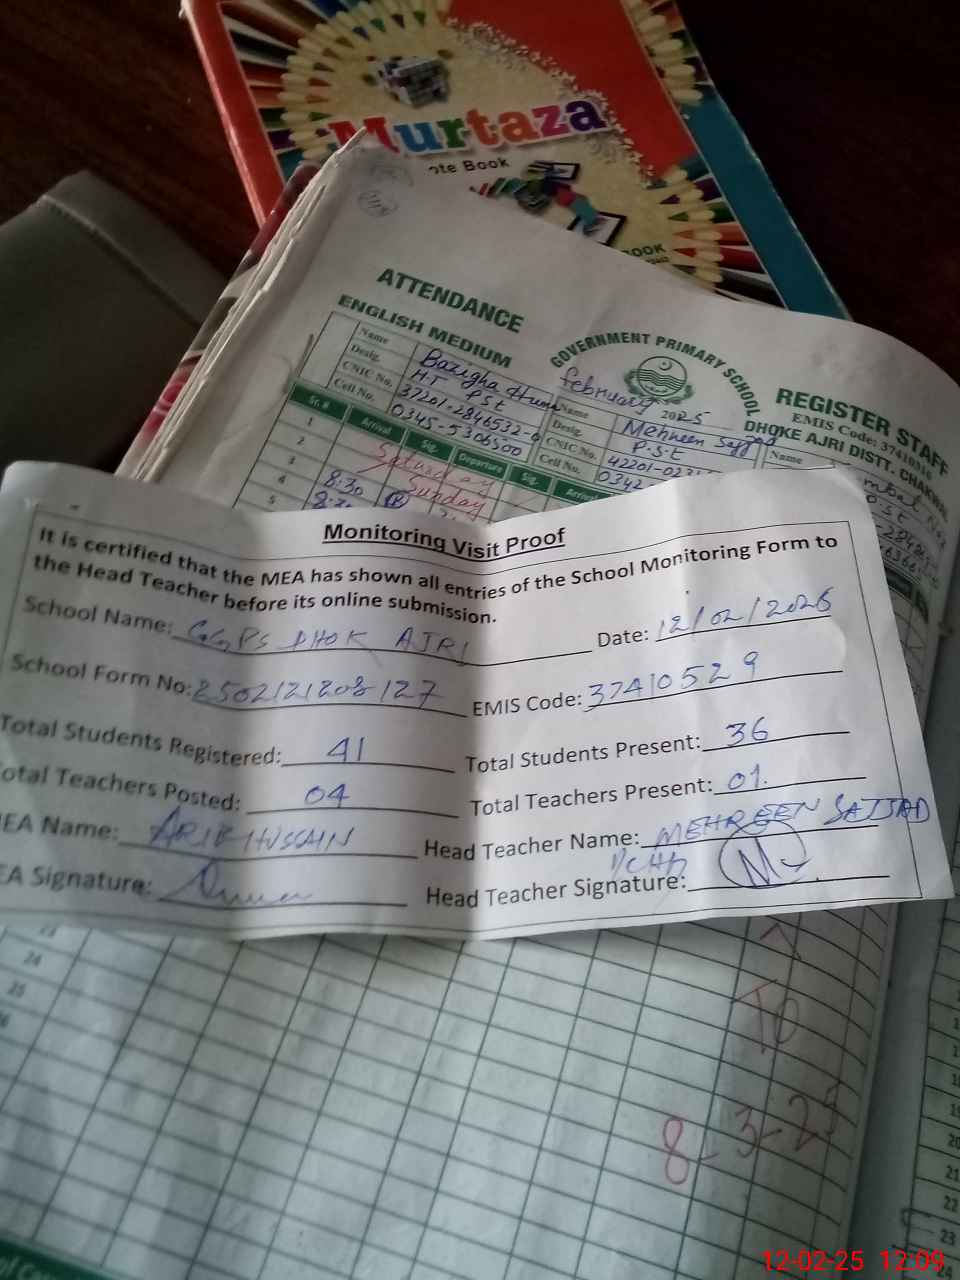 Murtaza
ote Book
BOOK
ATTENDANCE
ENGLISH MEDIUM
GOVERNMENT PRIMARY SCHOOL
REGISTER STAFF
EMIS Code: 37410
DHOKE AJRI DISTT. CHAKWAL
february 2025
Name Bazigha Huma
Desig. H.T PSt
CNIC No. 37201-2846532-
Cell No. 0345-5306500
Name Mehreen Sajjad
Desig. P.S.t
CNIC No. 42201-02
Cell No. 0342
Name
Sr.# Arrival Sig. Departure Sig. Arrival
1 Saturday
2 Sunday
3 8:30
4
5
Monitoring Visit Proof
It is certified that the MEA has shown all entries of the School Monitoring Form to
the Head Teacher before its online submission.
School Name: GGPS DHOK AJRI Date: 12/02/2025
School Form No: EMIS Code: 37410529
Total Students Registered: 41 Total Students Present: 36
otal Teachers Posted: 04 Total Teachers Present: 01.
EA Name: HUSSAIN Head Teacher Name: MEHREEN SAJJAD
EA Signature: Head Teacher Signature: M
I/CHT
23
24
25
To
8-3-25
20
21
22
23
24
12-02-25 12:09